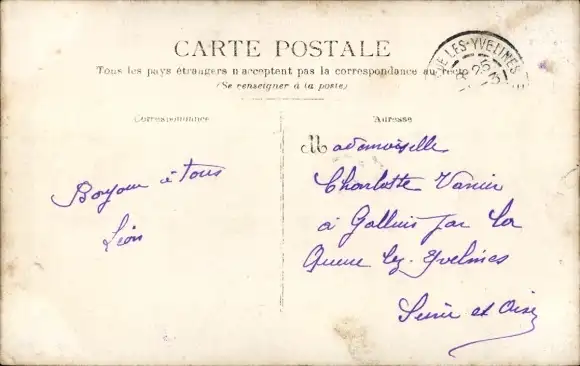 CARTE POSTALE
Tous les pays étrangers n'acceptent pas la correspondance au recto
(Se renseigner à la poste)
LES-YVELINES
25
Correspondance
Adresse
Mademoiselle
Charlotte Vanier
à Galluis par La
Queue lez-Yvelines
Seine et Oise
Bonjour à tous
Léon